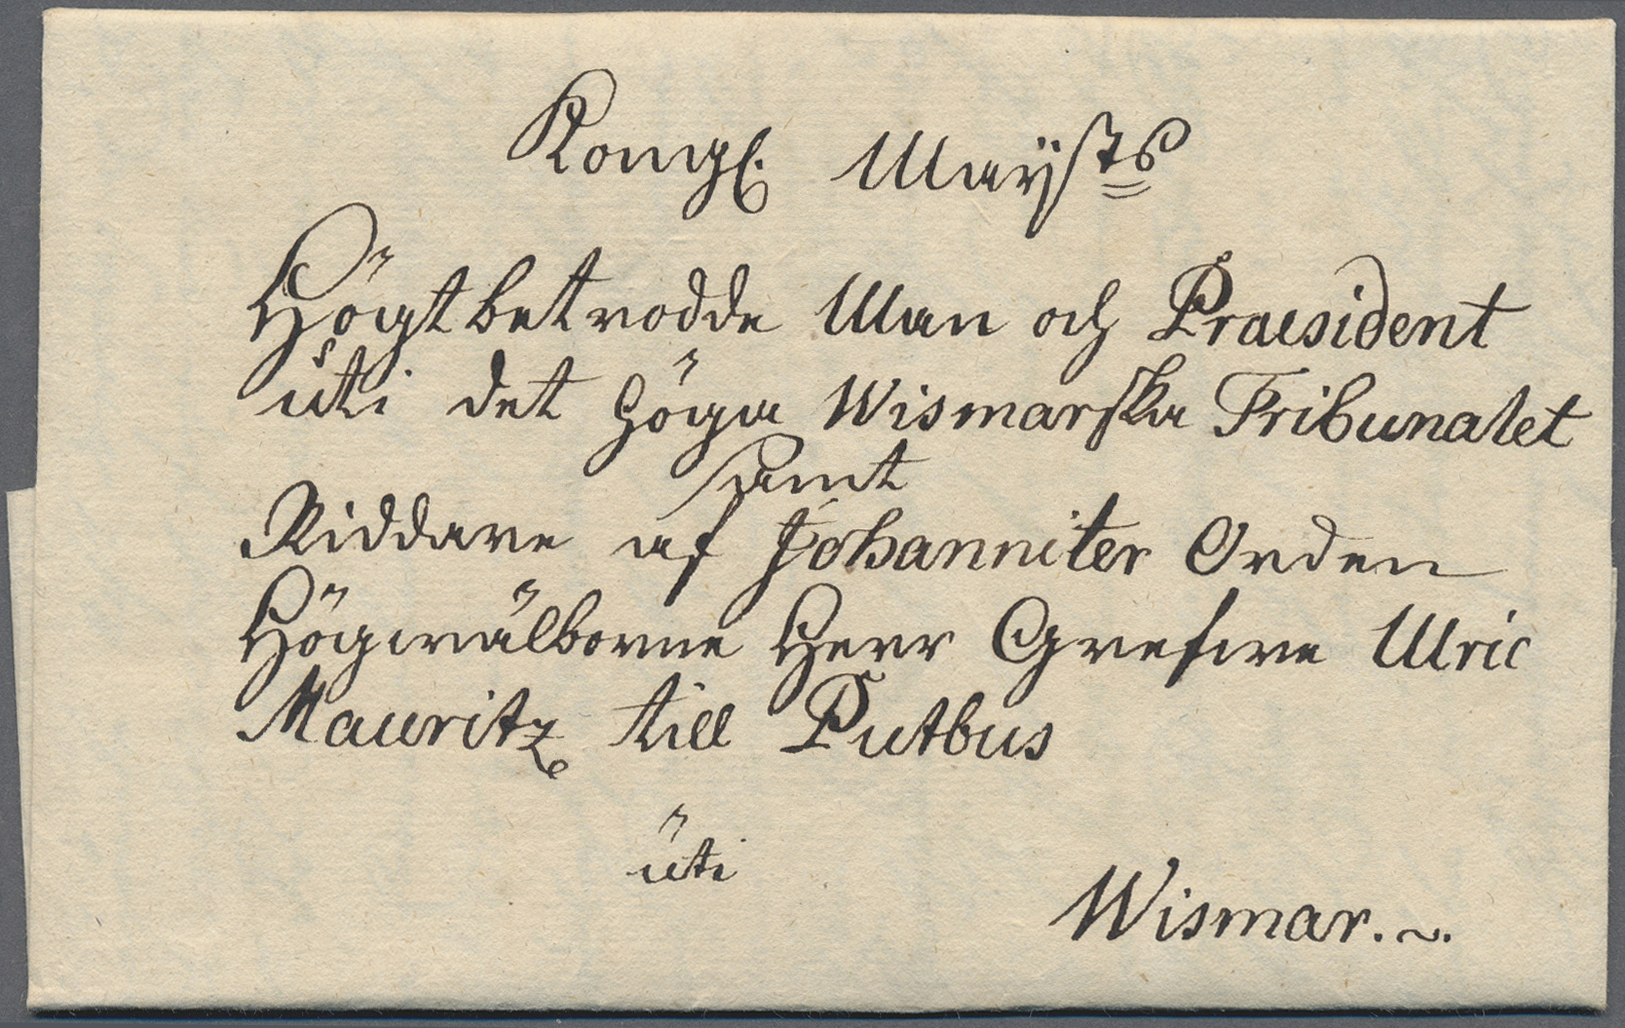 Kongl. Maÿsts
Högtbetrodde Man och Præsident
uti det Höga Wismarska Tribunalet
samt
Riddare af Johanniter Orden
Högwälborne Herr Grefwe Ulric
Mauritz till Putbus
uti
Wismar.